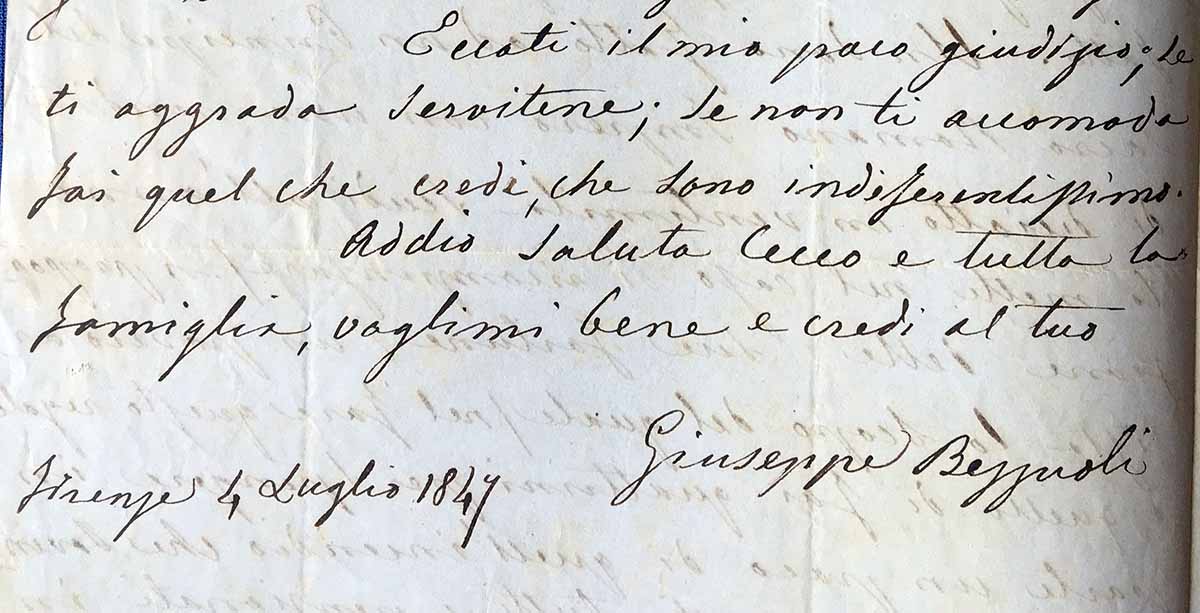 Eccoti il mio poco giudizio; se
ti aggrada servitene; se non ti accomoda
fai quel che credi, che sono indiferentissimo.
Addio saluta Cecco e tutta la
famiglia, voglimi bene e credi al tuo
Giuseppe Bezzuoli
Firenze 4 Luglio 1847